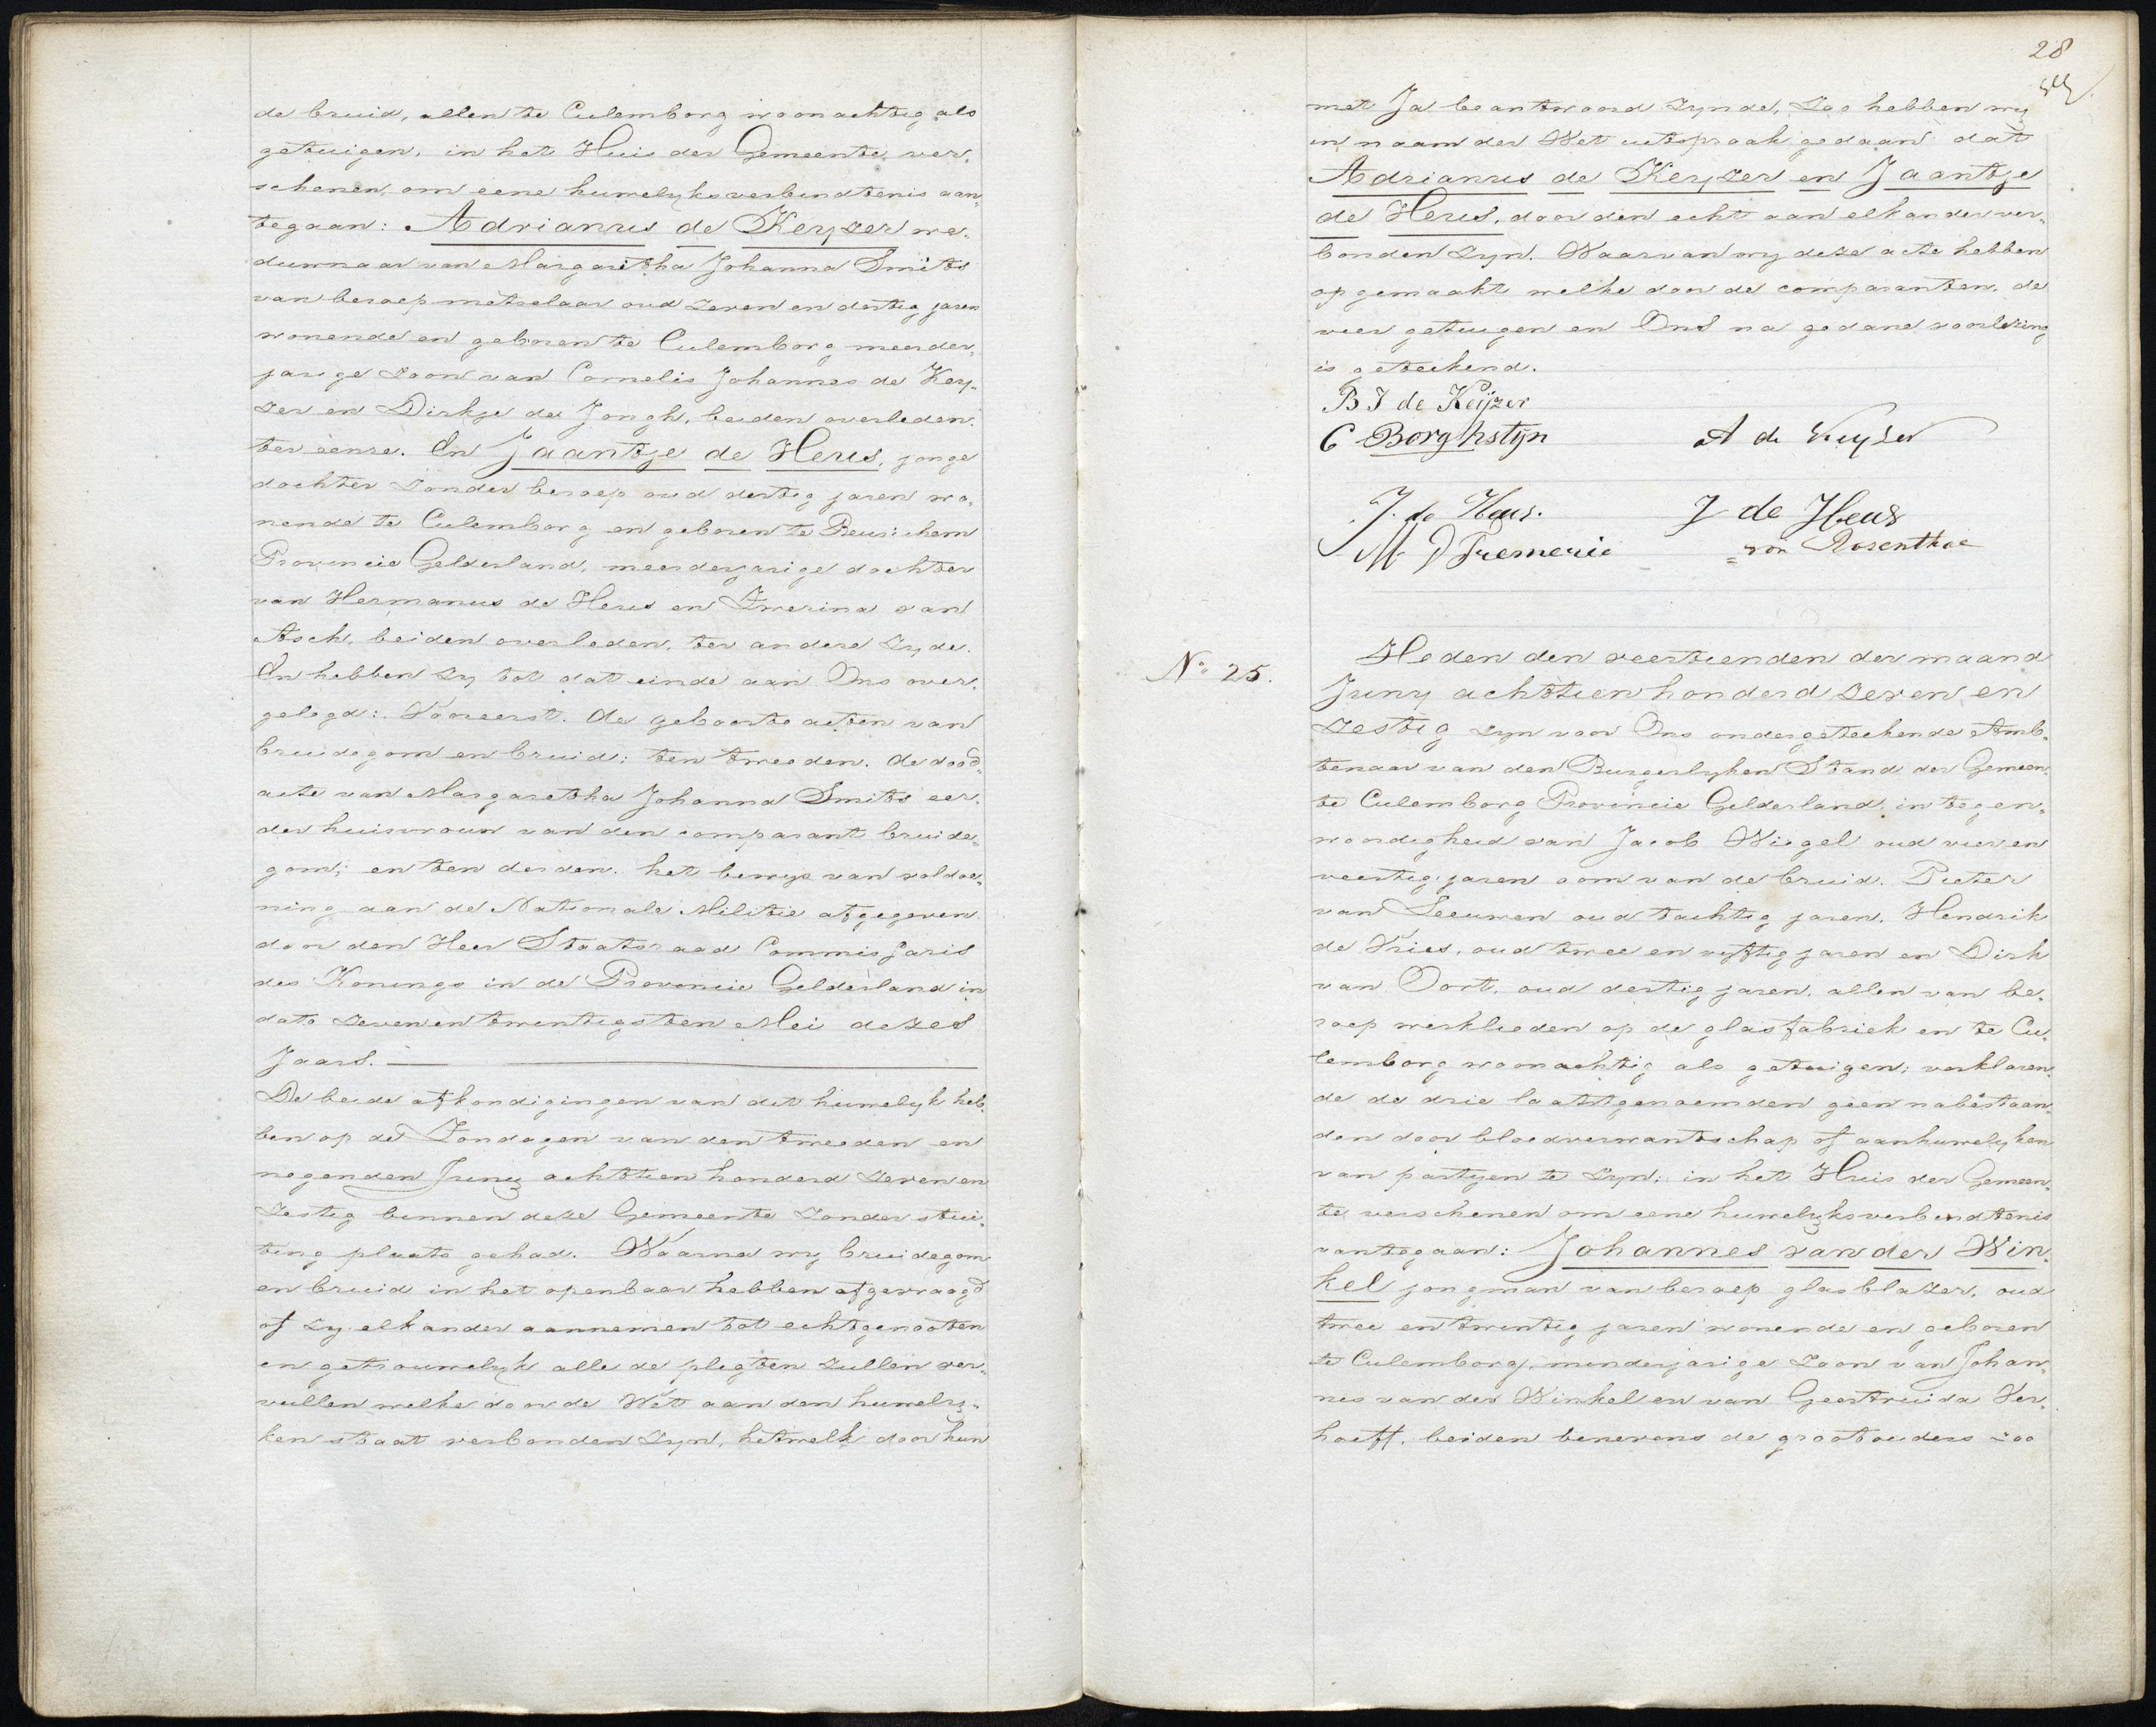 de bruid, allen te Culemborg woonachtig als
getuigen, in het Huis der Gemeente ver„
schenen, om eene huwelyksverbindtenis aan
tegaan: Adrianus de Keyzer we„
duwnaar van Margaretha Johanna Smits
van beroep metselaar oud zeven en dertig jaren
wonende en geboren te Culemborg meerder„
jarige zoon van Cornelis Johannes de Key„
zer en Dirkje de Jongh, beiden overleden.
ter eenre. En Jaantje de Heus, jonge
dochter zonder beroep oud dertig jaren wo„
nende te Culemborg en geboren te Beusichem
Provincie Gelderland, meerderjarige dochter
van Hermanus de Heus en Zwerina van
Asch, beiden overleden, ter andere zyde.
En hebben zy tot dat einde aan Ons over„
gelegd: Vooreerst. de geboorte acten van
bruidegom en bruid; ten tweeden. de dood„
acte van Margaretha Johanna Smits eer„
der huisvrouw van den comparant bruide„
gom; en ten derden. het bewys van voldoe„
ning aan de Nationale Militie afgegeven
door den Heer Staatsraad Commissaris
des Konings in de Provincie Gelderland in
dato zevenentwintigsten Mei dezes
Jaars.
De beide afkondigingen van dit huwelyk heb„
ben op de Zondagen van den tweeden en
negenden Juny achttien honderd zeven en
zestig binnen deze Gemeente zonder stui„
ting plaats gehad. Waarna wy bruidegom
en bruid in het openbaar hebben afgevraagd
of zy elkander aannemen tot echtgenooten
en getrouwelyk alle de plegten zullen ver„
vullen welke door de Wet aan den huwely„
ken staat verbonden zyn, hetwelk door hun
28
met Ja beantwoord zynde, Zoo hebben wy
in naam der Wet uitspraak gedaan dat
Adrianus de Keyzer en Jaantje
de Heus, door den echt aan elkander ver„
bonden zyn. Waarvan wy deze acte hebben
opgemaakt welke door de comparanten, de
vier getuigen en Ons na gedane voorlezing
is geteekend.
B J de Keijzer
C Borghstijn A de Kuyser
J. de Heus. J de Heus
M D Tremerie von Rosenthal
No 25.
Heden den veertienden der maand
Juny achttien honderd zeven en
zestig zyn voor Ons ondergeteekende Amb„
tenaar van den Burgerlyken Stand der Gemeen„
te Culemborg Provincie Gelderland, in tegen„
woordigheid van Jacob Wiegel oud vier en
veertig jaren oom van de bruid. Pieter
van Leeuwen oud tachtig jaren, Hendrik
de Vries, oud twee en vyftig jaren en Dirk
van Oort, oud dertig jaren, allen van be„
roep werklieden op de glasfabriek en te Cu„
lemborg woonachtig als getuigen; verklaren„
de de drie laatstgenoemden geen nabestaan„
den door bloedverwantschap of aanhuwelyken
van partyen te zyn; in het Huis der Gemeen„
te verschenen om eene huwelyksverbindtenis
aantegaan: Johannes van der Win„
kel jongman van beroep glasblazer, oud
twee en twintig jaren wonende en geboren
te Culemborg, minderjarige zoon van Johan„
nes van der Winkel en van Geertruida Ver„
hoeff, beiden benevens de grootouders zoo